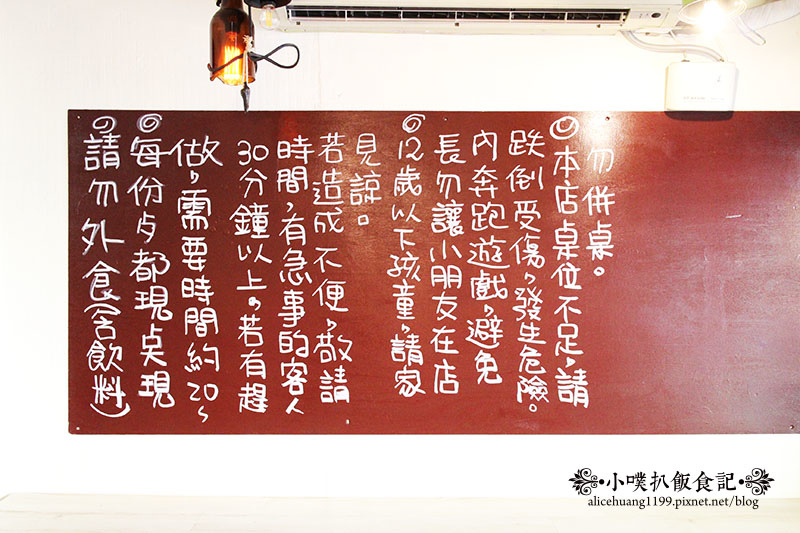 ◎請勿外食(含飲料)
◎每份歺都現点現
做，需要時間約20~
30分鐘以上。若有趕
時間，有急事的客人
若造成不便，敬請
見諒。
◎12歲以下孩童，請家
長勿讓小朋友在店
內奔跑遊戲，避免
跌倒受傷，發生危險。
◎本店桌位不足，請
勿併桌。
小噗扒飯食記
alicehuang1199.pixnet.net/blog